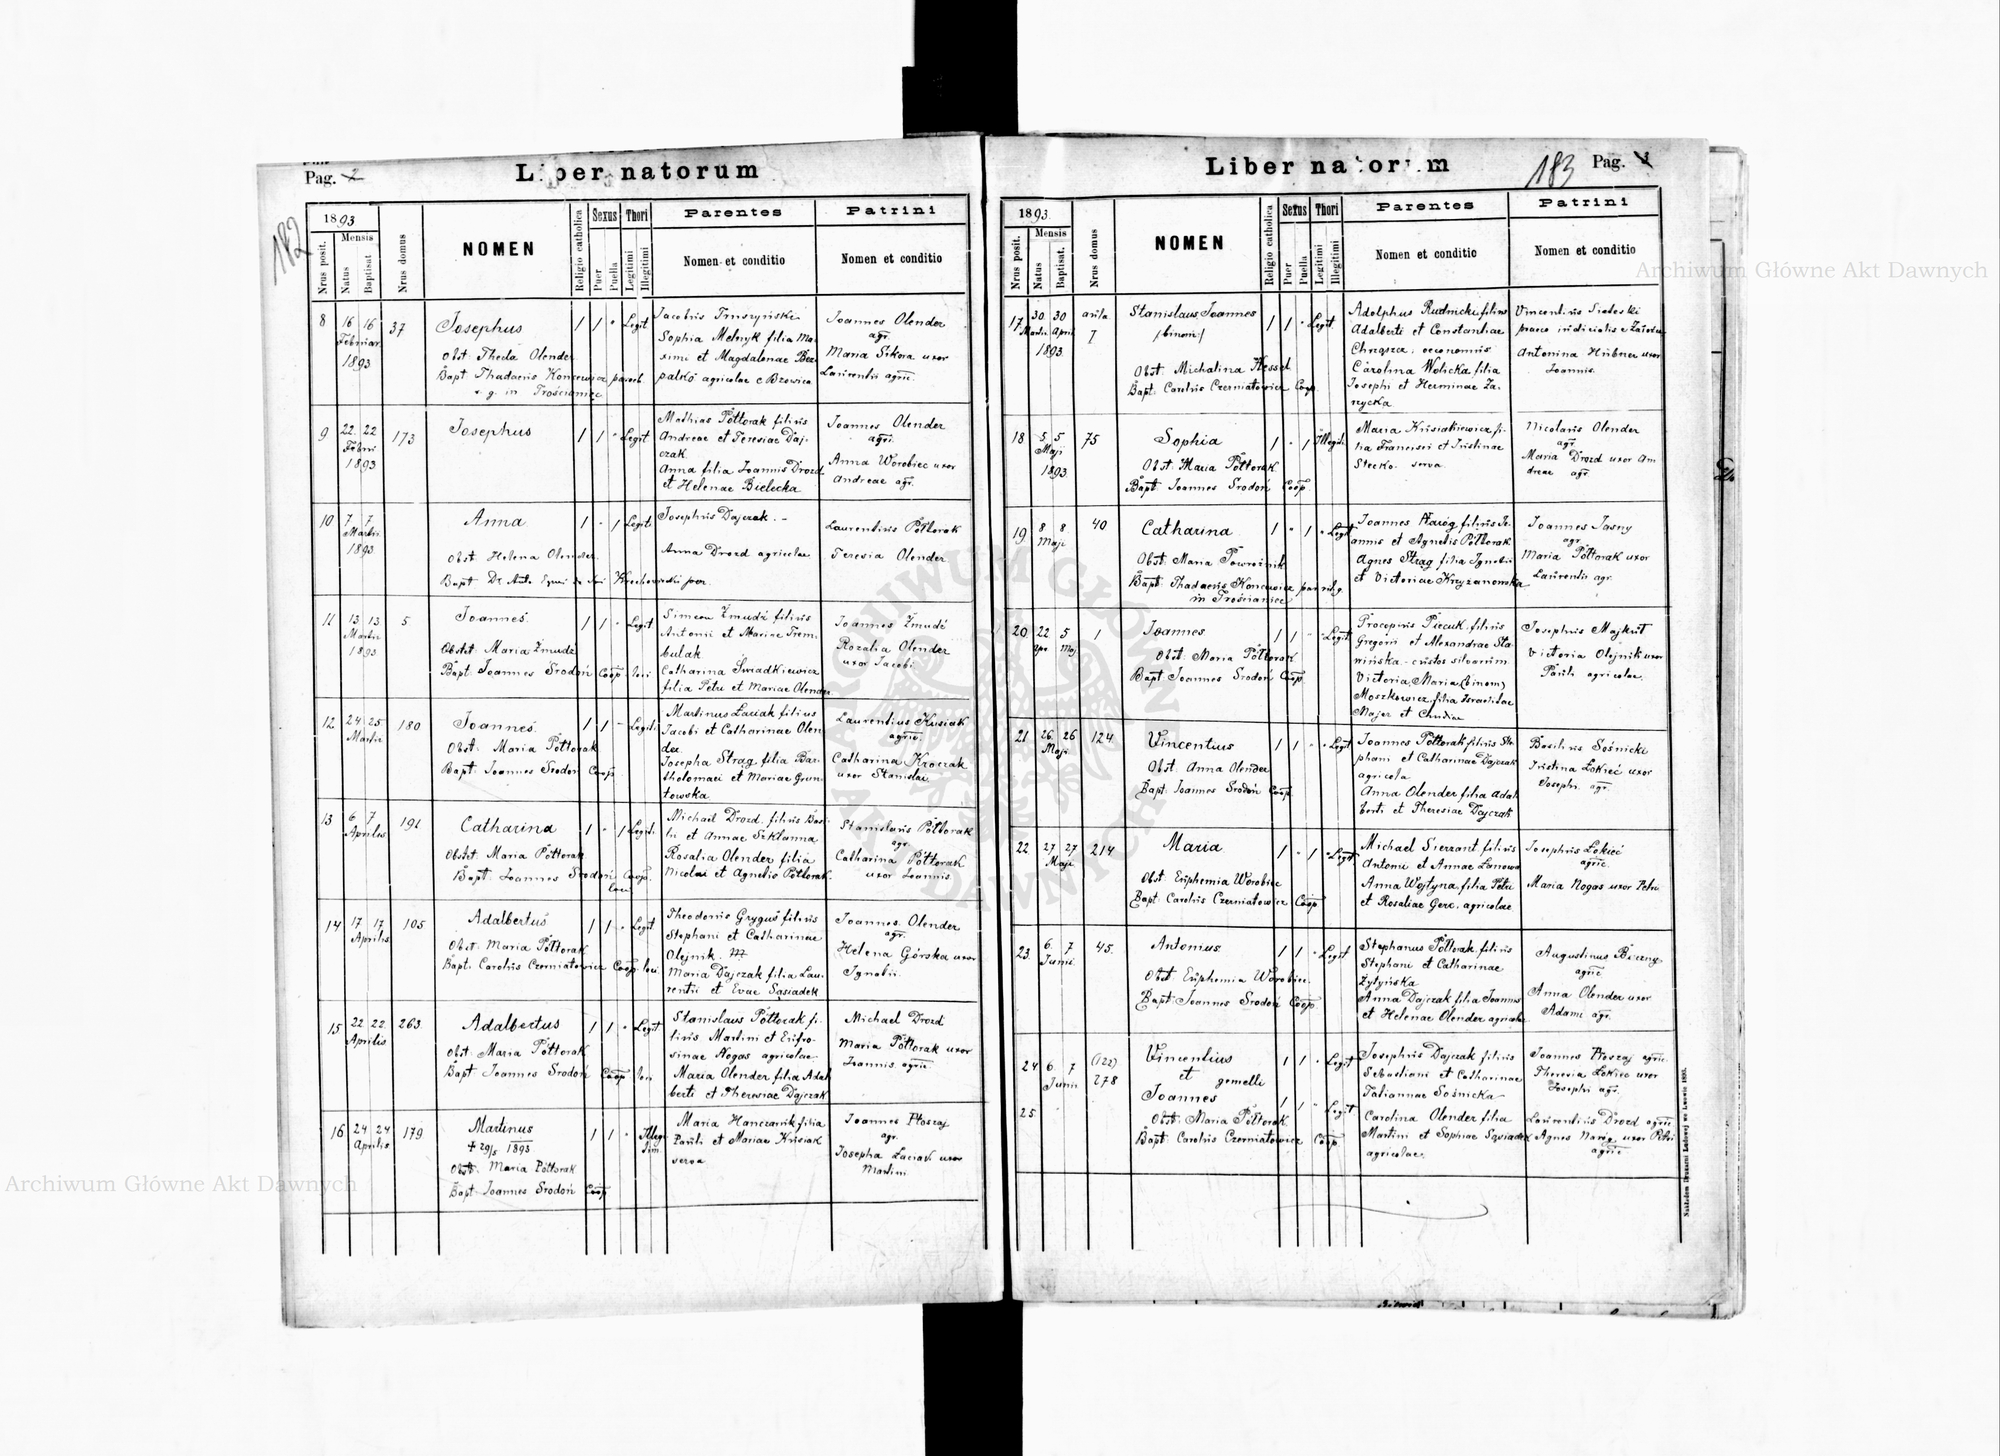 Liber natorum
Pag. 2
182
1893
Nrus posit.
Mensis
Natus
Baptisat.
Nrus domus
NOMEN
Religio catholica
Sexus
Puer
Puella
Thori
Legitimi
Illegitimi
Parentes
Nomen et conditio
Patrini
Nomen et conditio
8
16 16
Februar
1893
37
Josephus
Obst. Thecla Olender
Bapt Thadaeus Koncewicz paroch
r. g. in Trościaniec
1 1 " Legit
Sophia Melnyk filia Ma-
ximi et Magdalenae Bez-
palko agricolae e Brzowica
Joannes Olender
agr.
Maria Sikora uxor
Laurentii agric.
9
22 22
Febru
1893
173
Josephus
1 1 " Legit
Mathias Półtorak filius
Andreae et Teresiae Daj-
czak
Anna filia Joannis Drozd
et Helenae Bielecka
Joannes Olender
agri.
Anna Worobiec uxor
Andreae agr.
10
7 7
Martii
1893
Anna
Obst. Helena Olender
1 " 1 Legit
Josephus Dajczak. -
Anna Drozd agricolae
Laurentius Półtorak
Teresia Olender
11
13 13
Martii
1893
5
Joannes.
Obstet. Maria Żmudź
Bapt Joannes Srodoń Coop loci
1 1 " Legit
Simeon Żmudź filius
Antonii et Mariae Trem-
bulak
Catharina Swiadkiewicz
filia Petri et Mariae Olender
Joannes Żmudź
Rozalia Olender
uxor Jacobi
12
24 25
Martii
180
Joannes.
Obst. Maria Półtorak
Bapt. Joannes Srodoń Coop.
1 1 " Legiti
Martinus Łaciak filius
Jacobi et Catharinae Olen
der
Josepha Strąg filia Bar-
tholomaei et Mariae Grun-
towska
Laurentius Kusiak
agric.
Catharina Kroczak
uxor Stanislai
13
6 7
Aprilis
191
Catharina
Obstet. Maria Półtorak
Bapt. Joannes Srodoń Coop.
loci
1 " 1 Legiti
Michael Drozd. filius Basi-
lii et Annae Szklanna
Rosalia Olender filia
Nicolai et Agnetis Półtorak.
Stanislaus Półtorak
agr.
Catharina Półtorak
uxor Joannis.
14
17 17
Aprilis
105
Adalbertus
Obst. Maria Półtorak
Bapt. Carolus Czerniatowicz Coop. loci.
1 1 " Legit
Theodorus Gryguś filius
Stephani et Catharinae
Olejnik.
Maria Dajczak filia Lau-
rentii et Evae Sąsiadek
Joannes. Olender
agr.
Helena Górska uxor
Ignatii.
15
22 22
Aprilis
263
Adalbertus
Obst. Maria Półtorak
Bapt Joannes Srodoń Coop loci
1 1 " Legit
Stanislaus Półtorak fi-
lius Martini et Eufro-
sinae Nogas agricolae
Maria Olender filia Adal
berti et Theresiae Dajczak
Michael Drozd
Maria Półtorak uxor
Joannis. agric.
16
24 24
Aprilis
179
Martinus
+ 29/5 1893
Obst. Maria Półtorak
Bapt Joannes Srodoń Coop
1 1 " Illegi
tim.
Maria Hanczarik filia
Pauli et Mariae Kusiak
serva
Joannes Ptoszaj
agr.
Josepha Łaciak uxor
Martini
Liber natorum
183
Pag.
1893.
Nrus posit.
Mensis
Natus
Baptisat.
Nrus domus
NOMEN
Religio catholica
Sexus
Puer
Puella
Thori
Legitimi
Illegitimi
Parentes
Nomen et conditio
Patrini
Nomen et conditio
17
30 30
Martii April
1893
aula
7
Stanislaus Joannes
(binom)
Obst. Michalina Hessel
Bapt. Carolus Czerniatowicz Coop.
1 1 " Legit.
Adolphus Rudnicki filius
Adalberti et Constantiae
Chrząszcz. oeconomus
Carolina Wolicka filia
Josephi et Herminae Za-
rzycka
Antonina Hübner uxor
Joannis.
18
5 5
Maji
1893
75
Sophia
Obst. Maria Półtorak
Bapt. Joannes Srodoń Coop.
1 " 1 Illegiti.
Maria Kusiakiewicz fi-
lia Francisci et Justinae
Stecko. serva
Nicolaus Olender
agr.
Maria Drozd uxor An
dreae agr.
19
8 8
Maji
40
Catharina
Obst. Maria Powroźnik
Bapt. Thadaeus Koncewicz par. r. g.
in Trościaniec
1 " 1 Legit
Joannes Naróg filius Jo-
annis et Agnetis Półtorak
Agnes Strąg filia Ignatii
et Victoriae Krzyżanowska
Joannes Jasny
agr.
Maria Półtorak uxor
Laurentii agr.
20
22 5
Apr Maj
1
Joannes
Obst. Maria Półtorak
Bapt Joannes Srodoń Coop
1 1 " Legit.
Procopius Piecuk filius
Gregorii et Alexandrae Sta-
wińska - custos silvarum
Victoria, Maria (binom)
Moszkowicz filia Israelidae
Majer et Chudiae
Josephus Majkut
Victoria Olejnik uxor
Pauli agricolae.
21
26. 26
Maji
124
Vincentius
Obst. Anna Olender
Bapt. Joannes Srodoń Coop.
1 1 " Legit
Joannes Półtorak filius Ste-
phani et Catharinae Dajczak
agricola
Anna Olender filia Adal
berti et Theresiae Dajczak
Basilius Sośnicki
Justina Łokieć uxor
Josephi. agr.
22
27 27
Maji
214
Maria
Obst. Euphemia Worobiec
Bapt. Carolus Czerniatowicz Coop
1 " 1 Legit
Michael Sierżant filius
Antonii et Annae Łanowa
Anna Wojtyna filia Petri
et Rosaliae Gerc. agricolae
Josephus Łokieć
agric.
Maria Nogas uxor Petri
23
6. 7
Junii
45.
Antonius
Obst Euphemia Worobiec.
Bapt Joannes Srodoń Coop
1 1 " Legit
Stephanus Półtorak filius
Stephani et Catharinae
Żytyńska
Anna Dajczak filia Joannis
et Helenae Olender agricolae
Augustinus Biczny
agric
Anna Olender uxor
Adami agr.
24
6 7
Junii
(122)
278
Vincentius
et gemelli
Joannes
Obst: Maria Półtorak
Bapt Carolus Czerniatowicz Coop.
1 1 " Legit
25
1 1 " Legit
Josephus Dajczak filius
Sebastiani et Catharinae
Juliannae Sośnicka
Carolina Olender filia
Martini et Sophiae Sąsiadek
agricolae.
Joannes Ptoszaj agric.
Theresia Łokieć uxor
Josephi agr.
Laurentius Drozd agric
Agnes Naróg uxor Petri
agric
Nakładem Drukarni Ludowej we Lwowie 1893.
Archiwum Główne Akt Dawnych
Archiwum Główne Akt Dawnych
ARCHIWUM GŁÓWNE AKT DAWNYCH